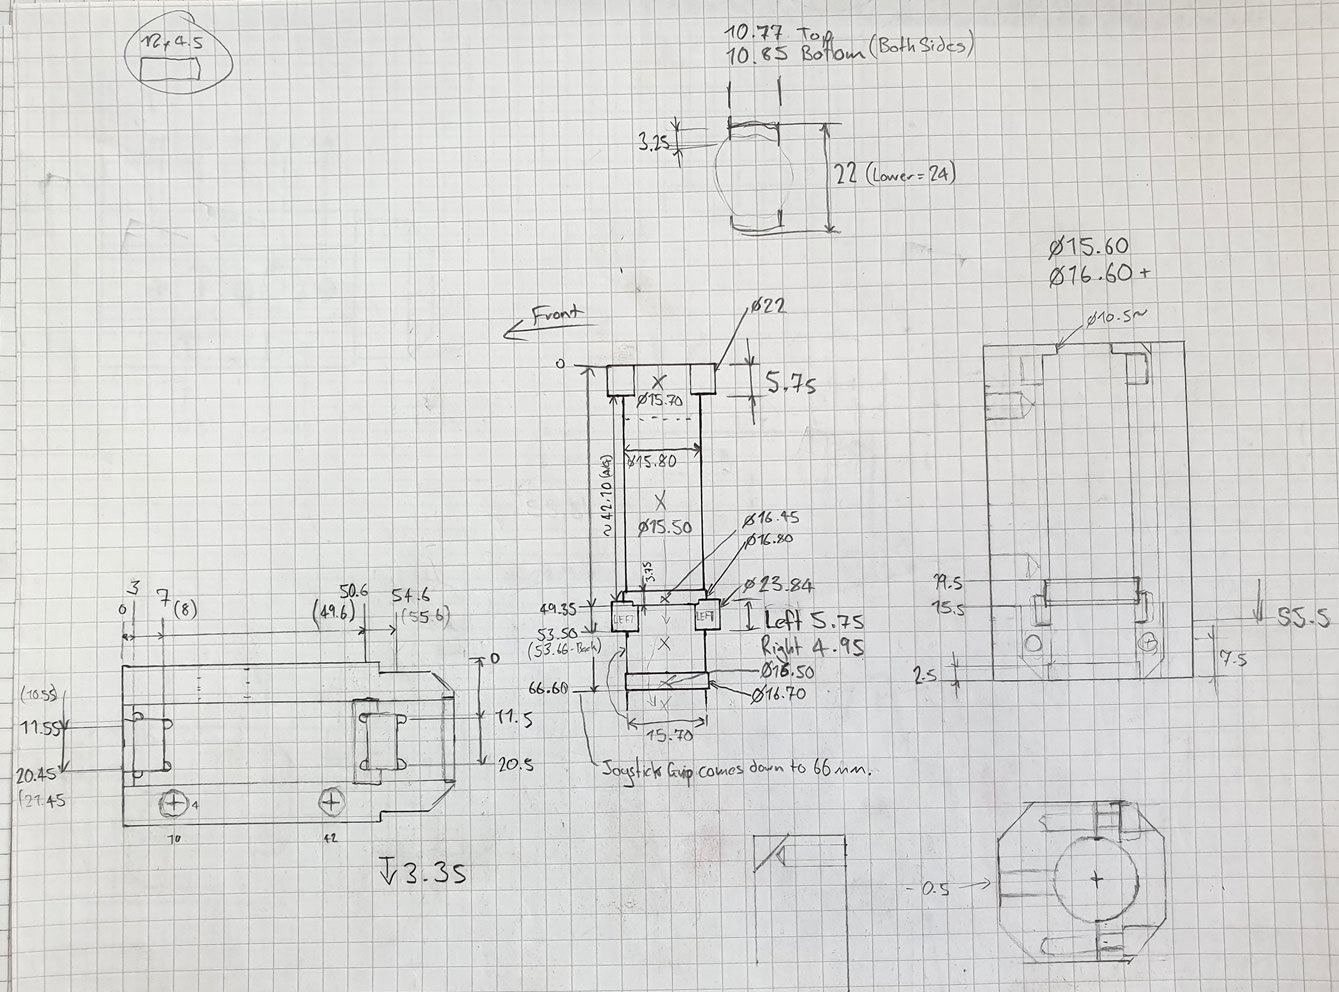 12x4.5
10.77 Top
10.85 Bottom (Both Sides)
3.25
22 (Lower = 24)
Ø15.60
Ø16.60 +
Ø10.5~
Front
Ø22
0
5.75
X
Ø15.70
Ø15.80
~42.10 (AVG)
X
Ø15.50
Ø16.45
Ø16.80
3.75
Ø23.84
49.35
LEFT
LEFT
Left 5.75
53.50
(53.66 - Back)
X
Right 4.95
Ø16.50
66.60
Ø16.70
15.70
Joystick Grip comes down to 66mm.
19.5
15.5
55.5
7.5
2.5
0
3
7
(8)
50.6
(49.6)
54.6
(55.6)
0
(10.55)
11.55
11.5
20.45
20.5
(21.45
4
10
42
3.35
-0.5